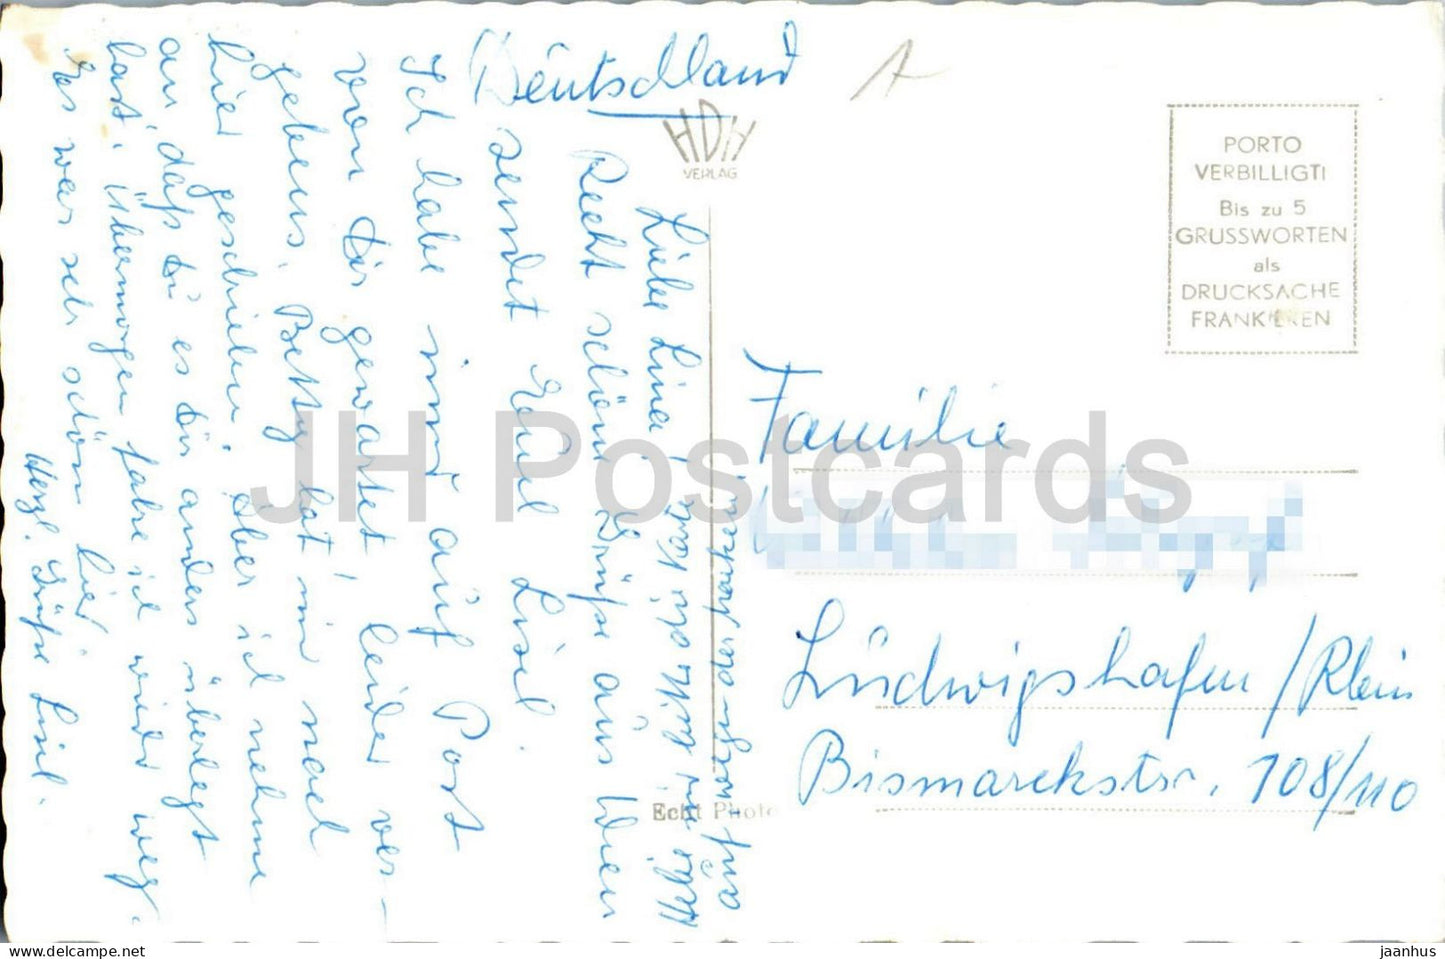 Deutschland
HDH
VERLAG
PORTO
VERBILLIGT!
Bis zu 5
GRUSSWORTEN
als
DRUCKSACHE
FRANKIEREN
Liebe Lina!
Recht schöne Grüße aus Wien
sendet Euch Lisel.
Ich habe immer auf Post
von Dir gewartet, leider ver-
gebens. Betty hat mir nach
hier geschrieben. Aber ich nehme
an, daß Du es Dir anders überlegt
hast. Übermorgen fahre ich wieder weg.
Es war sehr schön hier.
Herzl. Grüße Lisel.
Familie
Ludwigshafen/Rhein
Bismarckstr. 108/110
Echt Photo
JH Postcards
hip.market
jaanhus